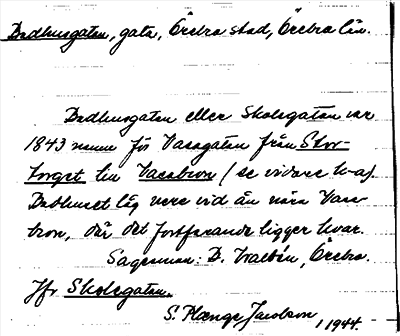 Badhusgatan, gata, Örebro stad, Örebro län.
Badhusgatan eller Skolegatan var
1843 namn för Vasagatan från Stor-
torget till Vasabron (se vidare d.o.)
Badhuset låg nere vid ån nära Vasa-
bron, där det fortfarande ligger kvar.
Sagesman: B. Waldén, Örebro.
Jfr Skolegatan.
S. Plænge Jacobson, 1944.